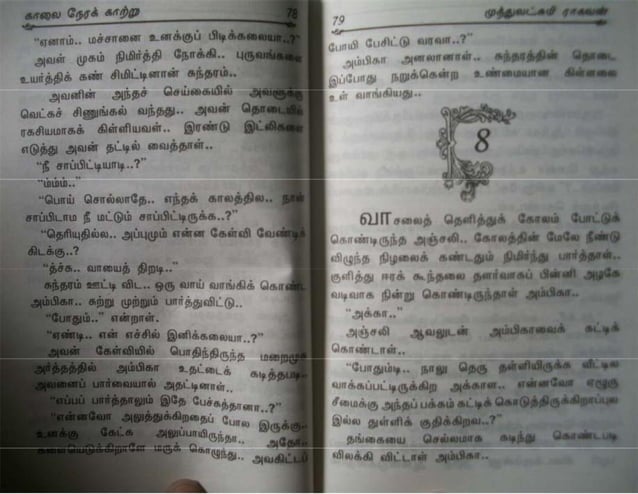 காலை நேரக் காற்று 78
"ஏனாம்.. மச்சானை உனக்குப் பிடிக்கலையா..?"
அவள் முகம் நிமிர்த்தி நோக்கி.. புருவங்களை
உயர்த்திக் கண் சிமிட்டினான் சுந்தரம்..
அவனின் அந்தச் செய்கையில் அவளுக்கு
வெட்கச் சிணுங்கல் வந்தது.. அவன் தொடையில்
ரகசியமாகக் கிள்ளியவள்.. இரண்டு இட்லிகளை
எடுத்து அவன் தட்டில் வைத்தாள்..
"நீ சாப்பிட்டியாடி..?"
"ம்ம்ம்.."
"பொய் சொல்லாதே.. எந்தக் காலத்தில.. நான்
சாப்பிடாம நீ மட்டும் சாப்பிட்டிருக்க..?"
"தெரியுதில்ல.. அப்புமும் என்ன கேள்வி வேண்டிக்
கிடக்கு..?
"த்ச்சு.. வாயைத் திறடி.."
சுந்தரம் ஊட்டி விட.. ஒரு வாய் வாங்கிக் கொண்ட
அம்பிகா.. சுற்று முற்றும் பார்த்துவிட்டு..
"போதும்.." என்றாள்.
"ஏண்டி.. என் எச்சில் இனிக்கலையா..?"
அவன் கேள்வியில் பொதிந்திருந்த மறைமுக
அர்த்தத்தில் அம்பிகா உதட்டைக் கடித்தபடி..
அவனைப் பார்வையால் அதட்டினாள்..
"எப்பப் பார்த்தாலும் இதே பேச்சுத்தானா..?"
"என்னவோ அலுத்துக்கிறதைப் போல இருக்கு..
உனக்கு கேட்க அலுப்பாயிருந்தா.. அதோ..
களையெடுக்கிறாளே மருக் கொழுந்து.. அவகிட்டப்
79 முத்துலட்சுமி ராகவன்
போயி பேசிட்டு வரவா..?"
அம்பிகா அனலானாள்.. சுந்தரத்தின் தொடை
இப்போது நறுக்கென்ற உண்மையான கிள்ளலை
உள் வாங்கியது..
8
வாசலைத் தெளித்துக் கோலம் போட்டுக்
கொண்டிருந்த அஞ்சலி.. கோலத்தின் மேலே நீண்டு
விழுந்த நிழலைக் கண்டதும் நிமிர்ந்து பார்த்தாள்..
குளித்து ஈரக் கூந்தலை தளர்வாகப் பின்னி அழகே
வடிவாக நின்று கொண்டிருந்தாள் அம்பிகா..
"அக்கா.."
அஞ்சலி ஆவலுடன் அம்பிகாவைக் கட்டிக்
கொண்டாள்..
"போதும்டி.. நாலு தெரு தள்ளியிருக்க வீட்டில
வாக்கப்பட்டிருக்கிற அக்காள.. என்னவோ ஏழூரு
சீமைக்கு அந்தப் பக்கம் கட்டிக் கொடுத்திருக்கிறாப்புல
இல்ல துள்ளிக் குதிக்கிறவ..?"
தங்கையை செல்லமாக கடிந்து கொண்டபடி
விலக்கி விட்டாள் அம்பிகா..